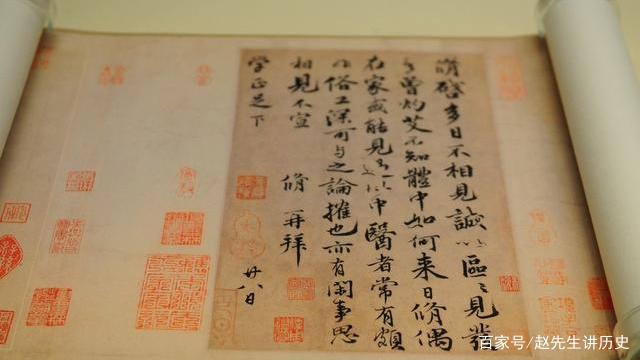 脩啓多日不相見誠以區〻見發
言曾灼艾不知體中如何来日脩偶
在家或能見過此中醫者常有頗
非俗工深可与之論搉也亦有閑事思
相見不宣 脩再拜
学正足下 廿八日
百家号/赵先生讲历史